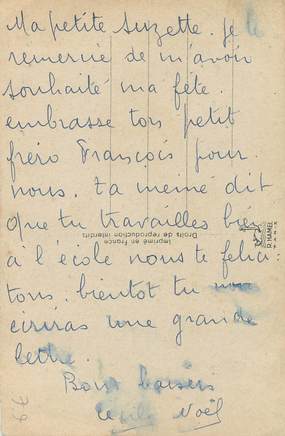 Ma petite Suzette. je te
remercie de m'avoir
souhaité ma fête.
embrasse ton petit
frère François pour
nous. ta mémé dit
que tu travailles bien
à l'école nous te félici:
tons. bientot tu
eciriras une grande
lettre.
Bons baisers
Noël
Imprimé en France
Droits de reproduction interdits